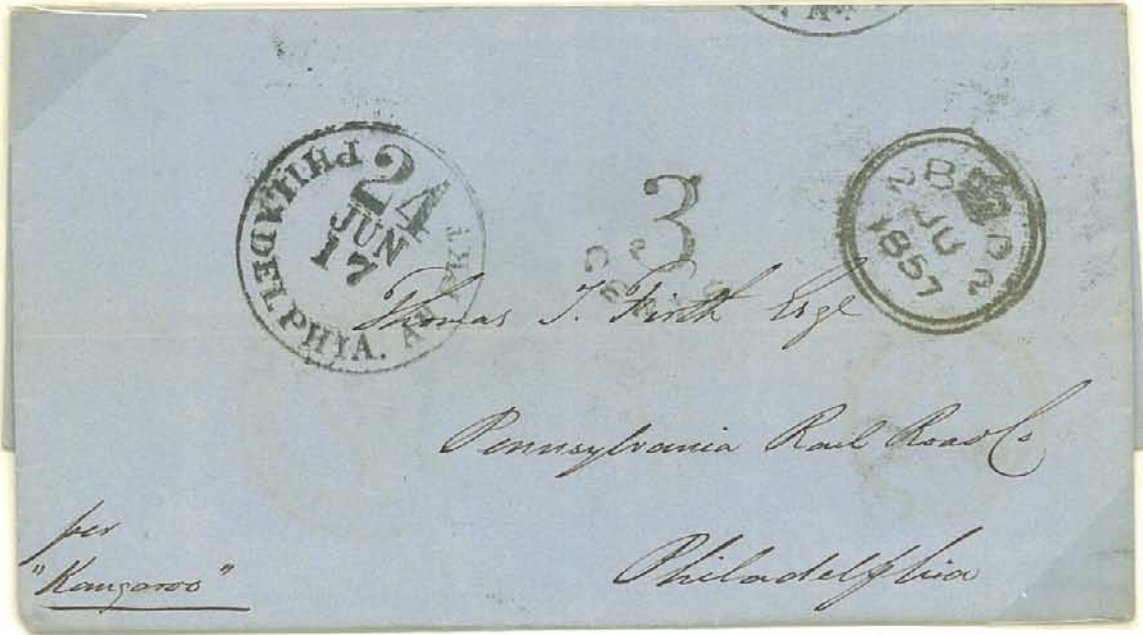 PHILADELPHIA. AM. PKT.
24
JUN
17
3
CENTS
2 JU
1857
Thomas T. Firth Esqe
Pennsylvania Rail Road Co
Philadelphia
per
"Kangaroo"